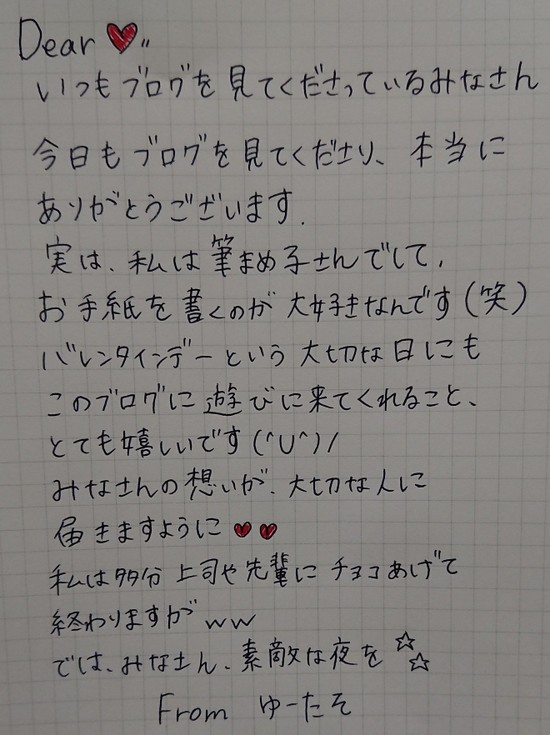 Dear ♥〃
いつもブログを見てくださっているみなさん
今日もブログを見てくださり、本当に
ありがとうございます.
実は、私は筆まめ子さんでして、
お手紙を書くのが大好きなんです(笑)
バレンタインデーという大切な日にも
このブログに遊びに来てくれること、
とても嬉しいです(^U^)/
みなさんの想いが、大切な人に
届きますように♥♥
私は多分上司や先輩にチョコあげて
終わりますがww
では、みなさん、素敵な夜を☆☆
From ゆーたそ